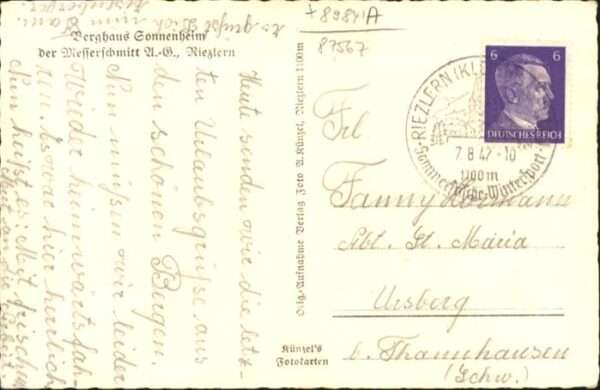 Berghaus Sonnenheim
der Messerschmitt A.-G., Riezlern
Heute senden wir die letz-
ten Urlaubsgrüße aus
den schönen Bergen.
Nun müssen wir leider
wieder heimwärts fah-
ren. Es war hier herrlich
Nun heißt es: Mit frischer
es grüßt Dich
Orig.-Aufnahme Verlag Foto A. Künzel, Riezlern 1100m
Künzel's
Fotokarten
+89841A
87567
6 6
DEUTSCHES REICH
RIEZLERN (KL
7.8.42-10
1100 m
Sommerfrische-Wintersport
Frl
Fanny Hörmann
Abt. St. Maria
Ursberg
b. Thannhausen
(Schw.)